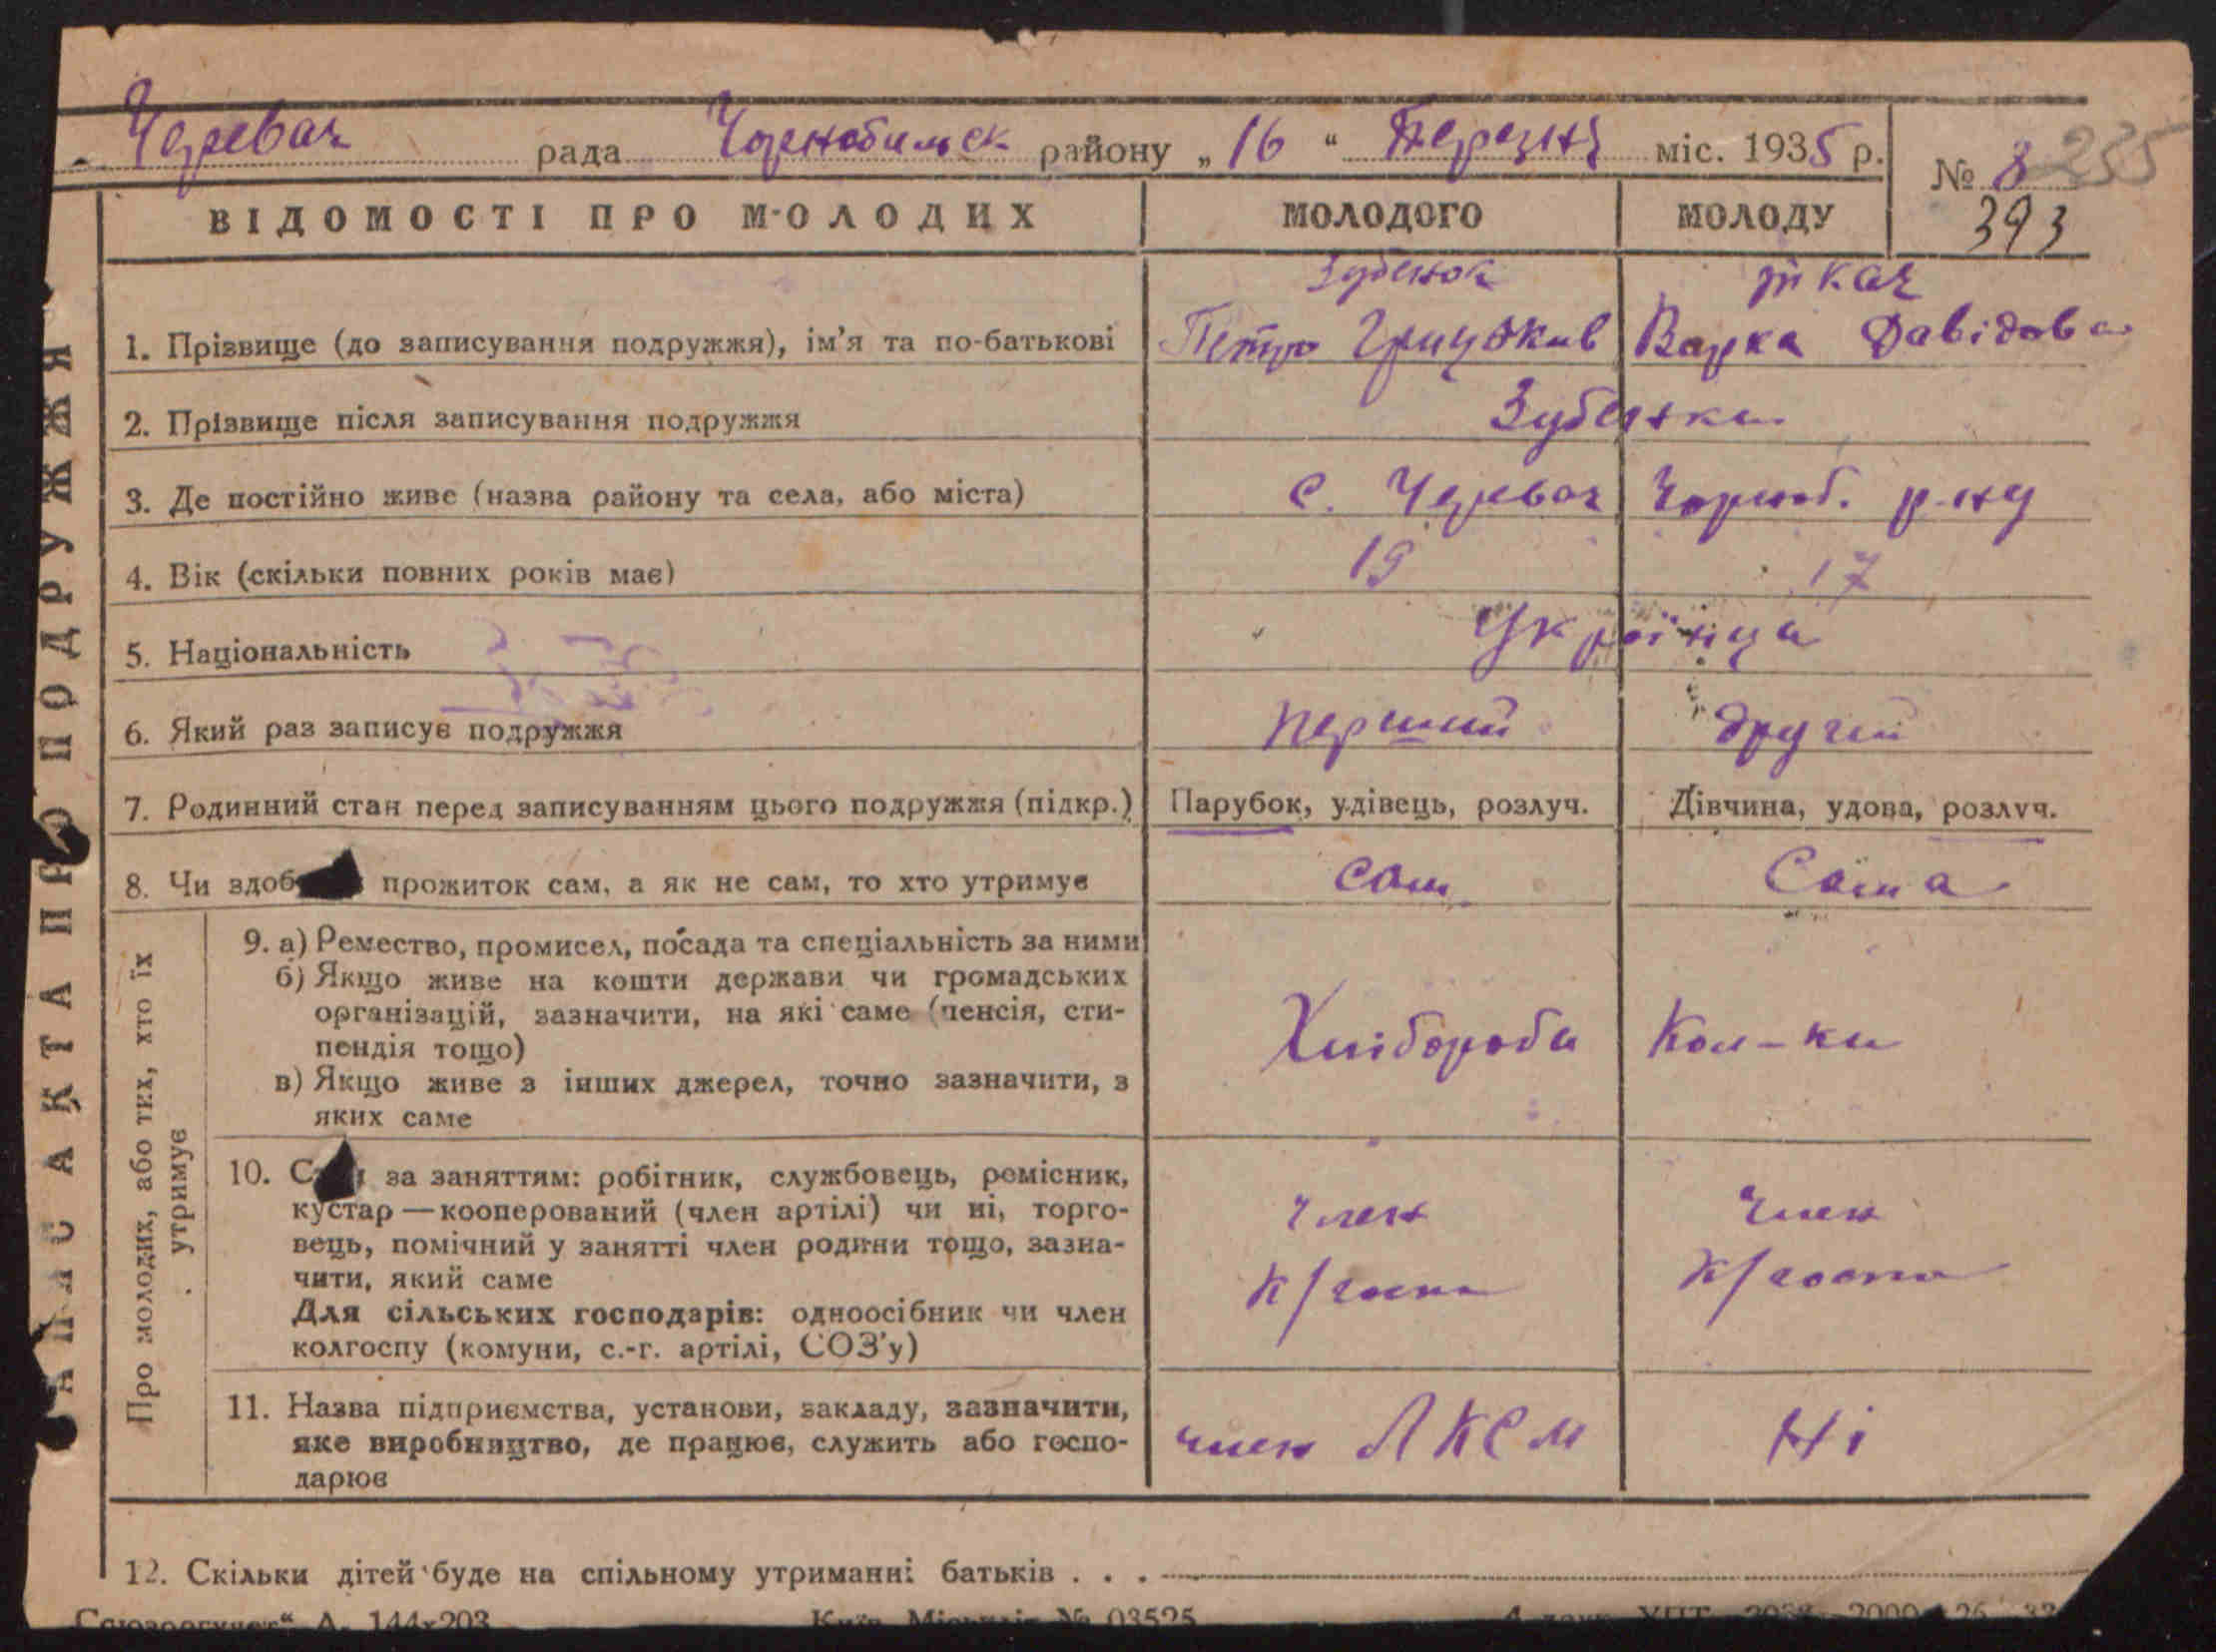 Черевач рада Чорнобильск району „16“ Березня міс. 1935 р.
№ 8 255
393
ВІДОМОСТІ ПРО МОЛОДИХ МОЛОДОГО МОЛОДУ
Зубенок Ткач
1. Прізвище (до записування подружжя), ім’я та по-батькові Петро Грицьків Варка Давідова
2. Прізвище після записування подружжя Зубенки
3. Де постійно живе (назва району та села, або міста) с. Черевач Чорноб. р-ну
4. Вік (скільки повних років має) 19 17
5. Національність Українці
6. Який раз записує подружжя перший другий
7. Родинний стан перед записуванням цього подружжя (підкр.) Парубок, удівець, розлуч. Дівчина, удова, розлуч.
8. Чи здоб прожиток сам, а як не сам, то хто утримує сам Сама
9. а) Ремество, промисел, посада та спеціальність за ними
б) Якщо живе на кошти держави чи громадських
організацій, зазначити, на які саме (пенсія, сти-
пендія тощо) Хлібороби Кол-ки
в) Якщо живе з інших джерел, точно зазначити, з
яких саме
10. за заняттям: робітник, службовець, ремісник,
кустар — кооперований (член артілі) чи ні, торго- член член
вець, помічний у занятті член родини тощо, зазна-
чити, який саме к/госпу к/госпу
Для сільських господарів: одноосібник чи член
колгоспу (комуни, с.-г. артілі, СОЗ’у)
11. Назва підприємства, установи, закладу, зазначити,
яке виробництво, де працює, служить або госпо- член ЛКСМ Ні
дарює
Про молодих, або тих, хто їх
утримує
12. Скільки дітей буде на спільному утриманні батьків . . .
АПИС АКТА ПРО ПОДРУЖЖЯ
Союзоргучет“ А. 144×203 Київ Міськліт № 03525